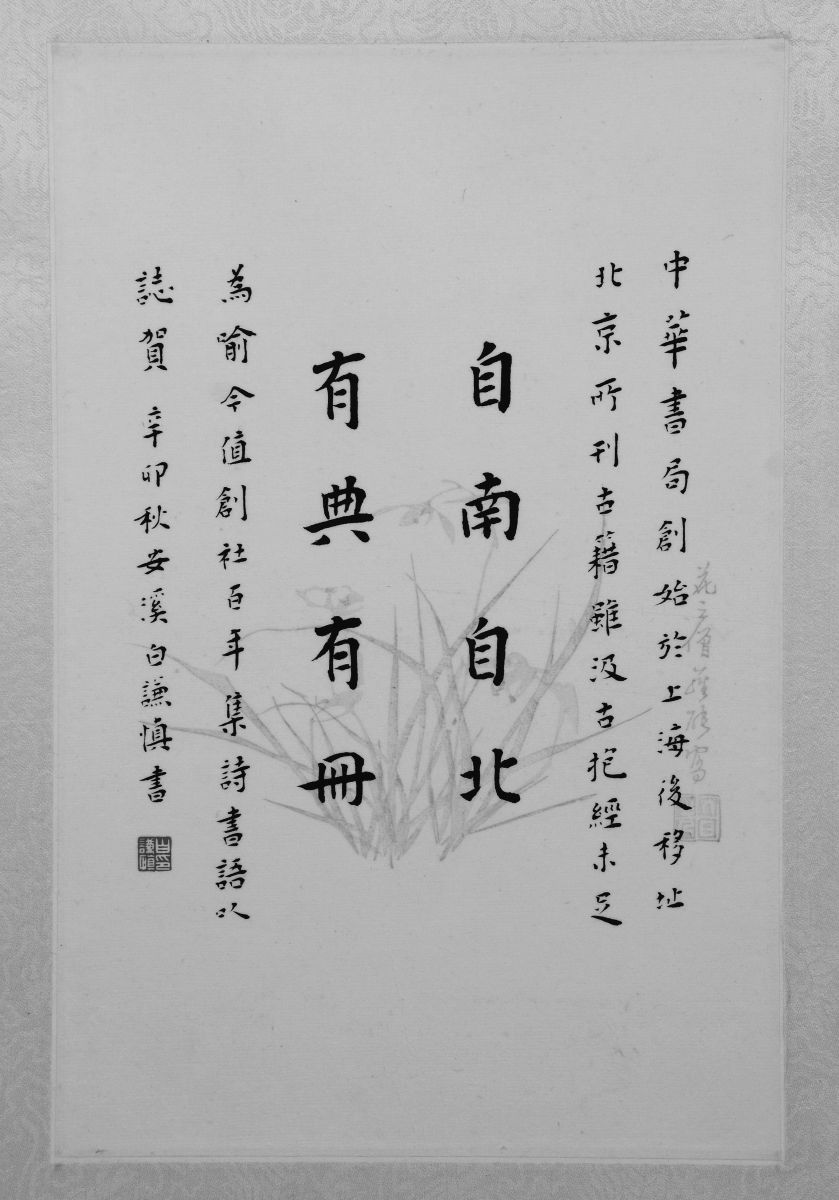 中華書局創始於上海後移址
北京所刊古籍雖汲古抱經未足
自南自北
有典有冊
為喻今值創社百年集詩書語以
誌賀 辛卯秋安溪白謙慎書
白謙慎印